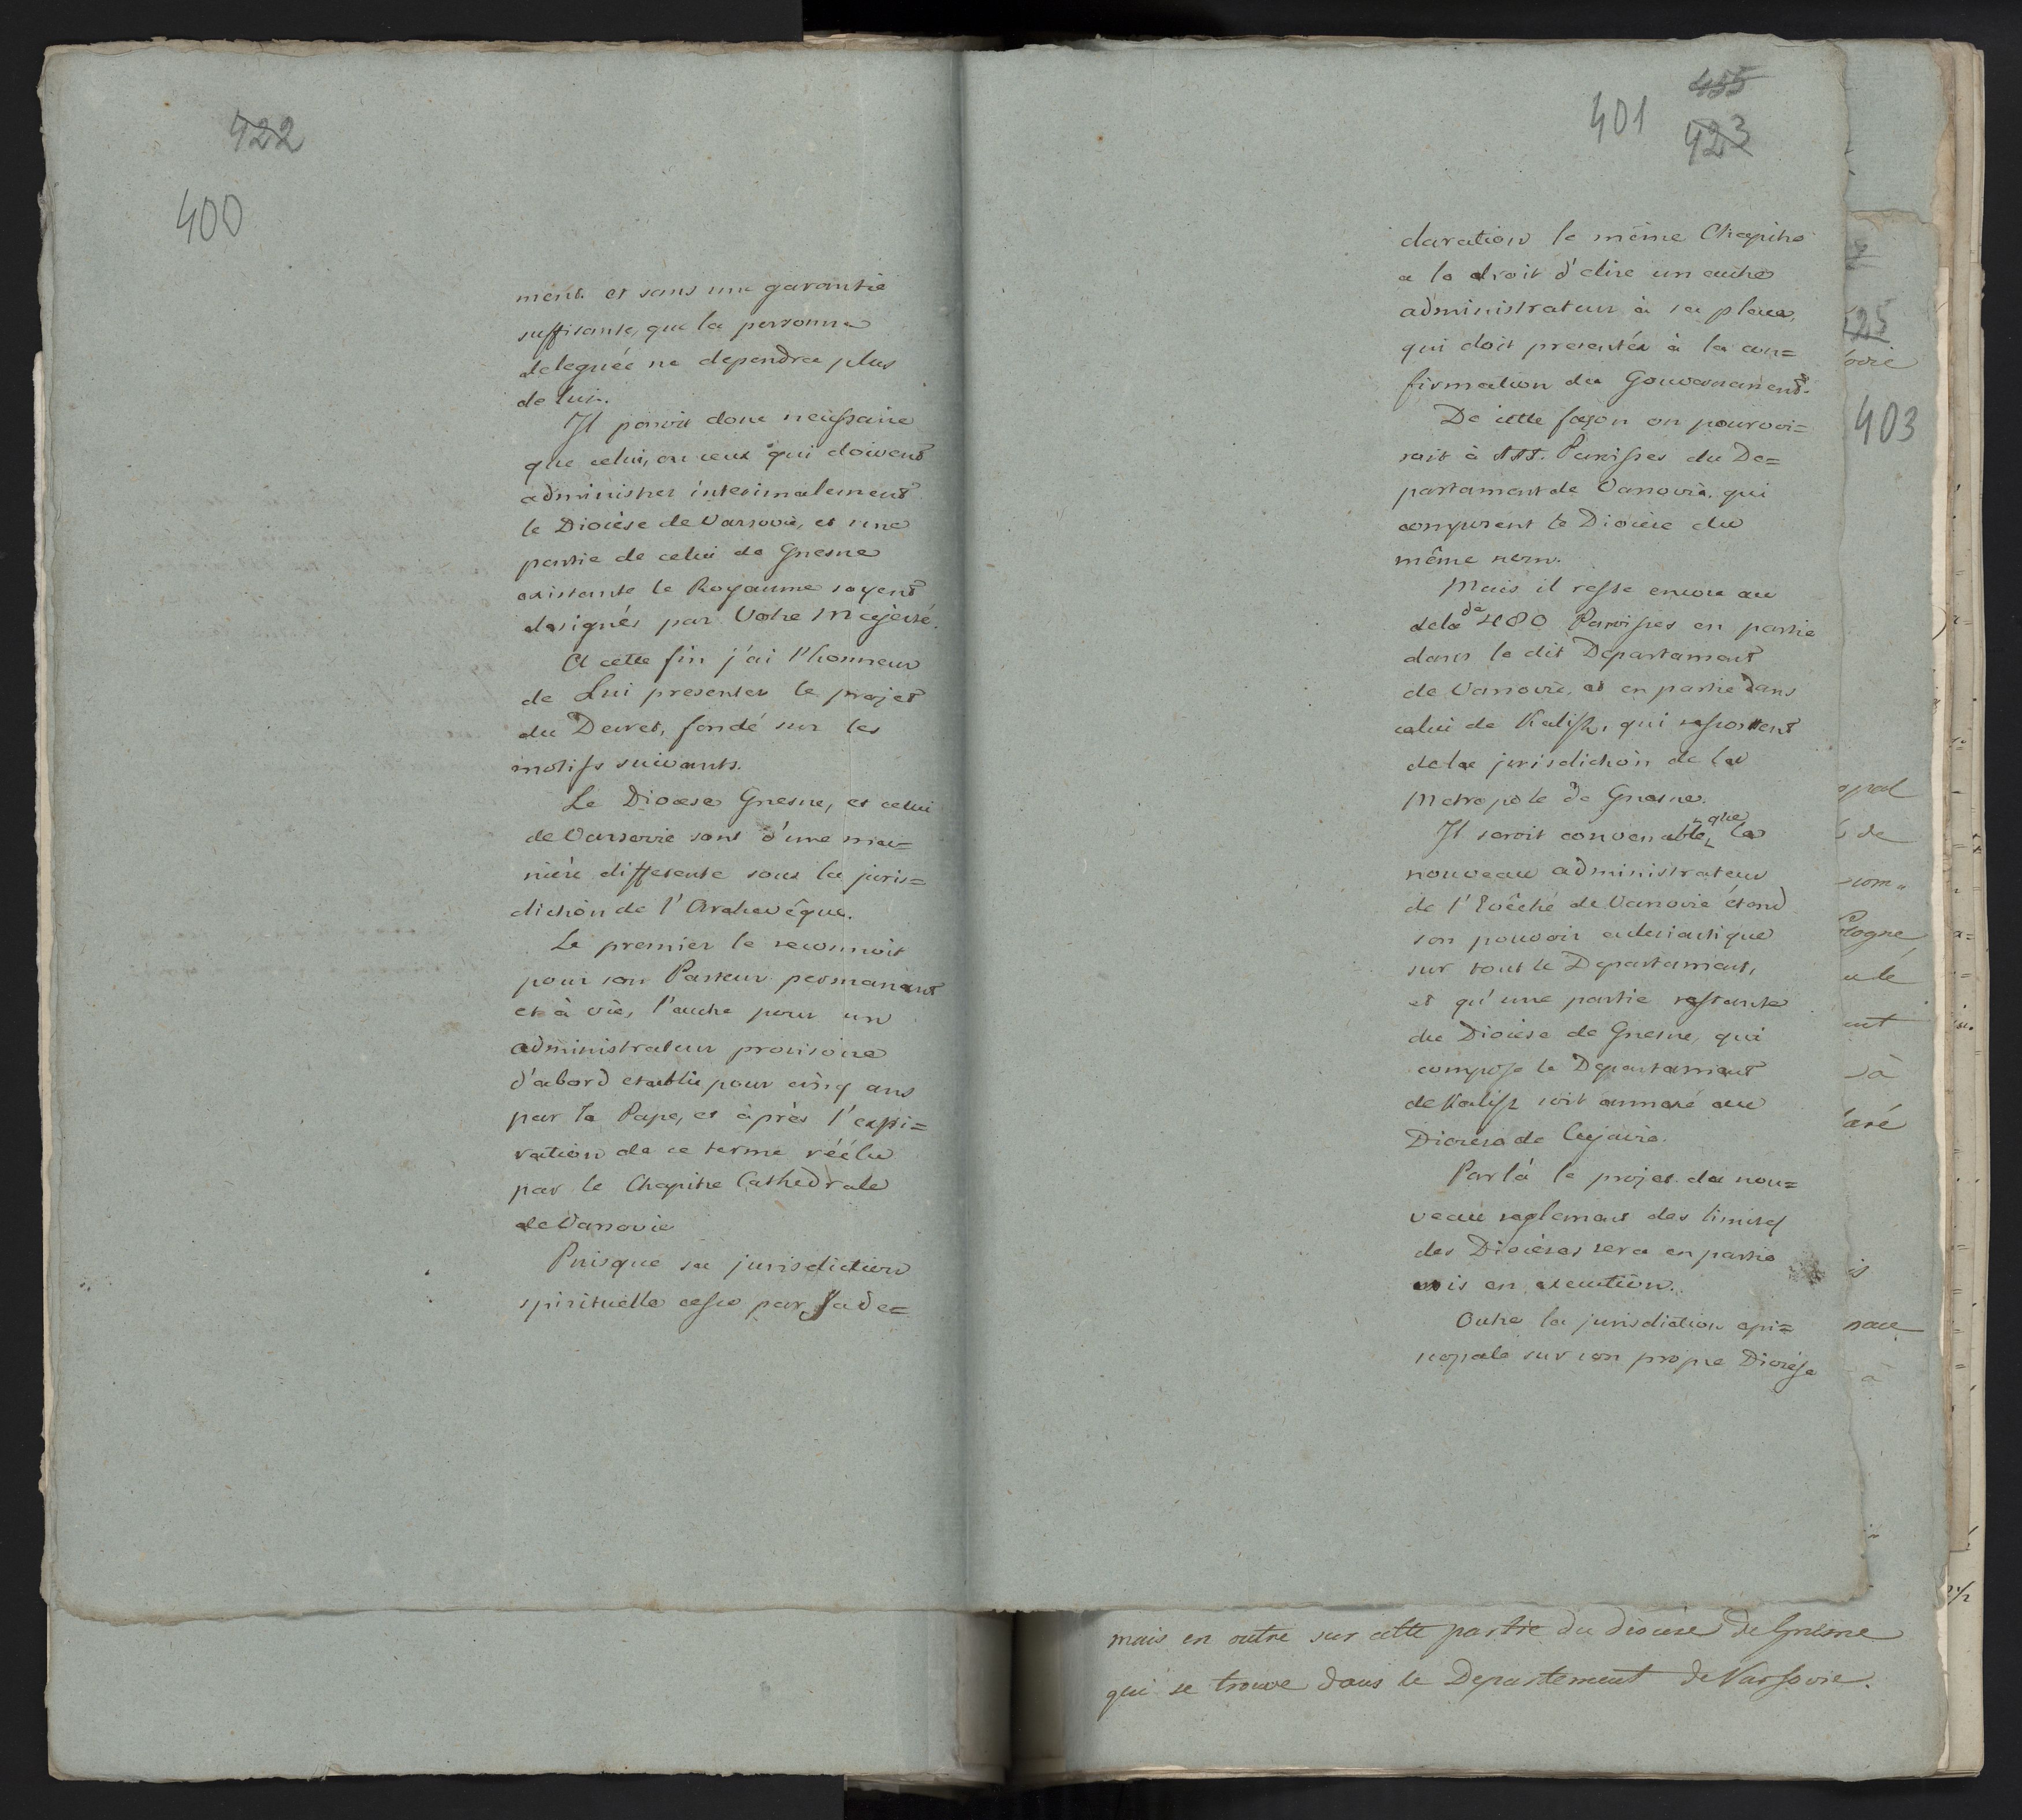 422
400
ment et sans une garantie
suffisante, que la personne
deleguée ne dependra plus
de lui.
Il paroit donc necessaire
que celui, ou ceux qui doivent
administrer interimalement
le Diocèse de Varsovie, et une
partie de celui de Gnesne
existante le Royaume soyent
designés par Votre Majesté.
A cette fin j'ai l'honneur
de Lui presenter le projet
du Decret, fondé sur les
motifs suivants.
Le Diocese Gnesne, et celui
de Varsovie sont d'une ma=
nière differente sous la juris=
diction de l'Archevêque.
Le premier le reconnoit
pour son Pasteur permanent
et à vie, l'autre pour un
administrateur provisoire
d'abord etabli pour cinq ans
par le Pape, et après l'expi=
ration de ce terme réélu
par le Chapitre Cathedrale
de Varsovie
Puisque sa jurisdiction
spirituelle cesse par sa de=
455
401 423
claration le même Chapitre
a le droit d'elire un autre
administrateur à sa place,
qui doit presentér à la con=
firmation du Gouvernement.
De cette façon on pourvoi=
roit à Paroisses du De=
partament de Varsovie, qui
composent le Diocèse du
même nom.
Mais il reste encore au
dela de 480 Paroisses en partie
dans le dit Departament
de Varsovie, et en partie dans
celui de Kalisz, qui ressortent
de la jurisdiction de la
Metropole de Gnesne.
Il seroit convenable, que le
nouveau administrateur
de l'Evêché de Varsovie étend
son pouvoir eclesiastique
sur tout le Departament,
et qu'une partie restante
du Diocèse de Gnesne, qui
compose le Departament
de Kalisz soit annexé au
Diocèse de Cujavie.
Par là le projet du nou=
veau reglement des limites
des Diocèses sera en partie
mis en execution.
Outre la jurisdiction epi=
scopale sur son propre Diocèse
mais en outre sur cette partie du diocèse de Gnesne
qui se trouve dans le Departement de Varsovie.
403